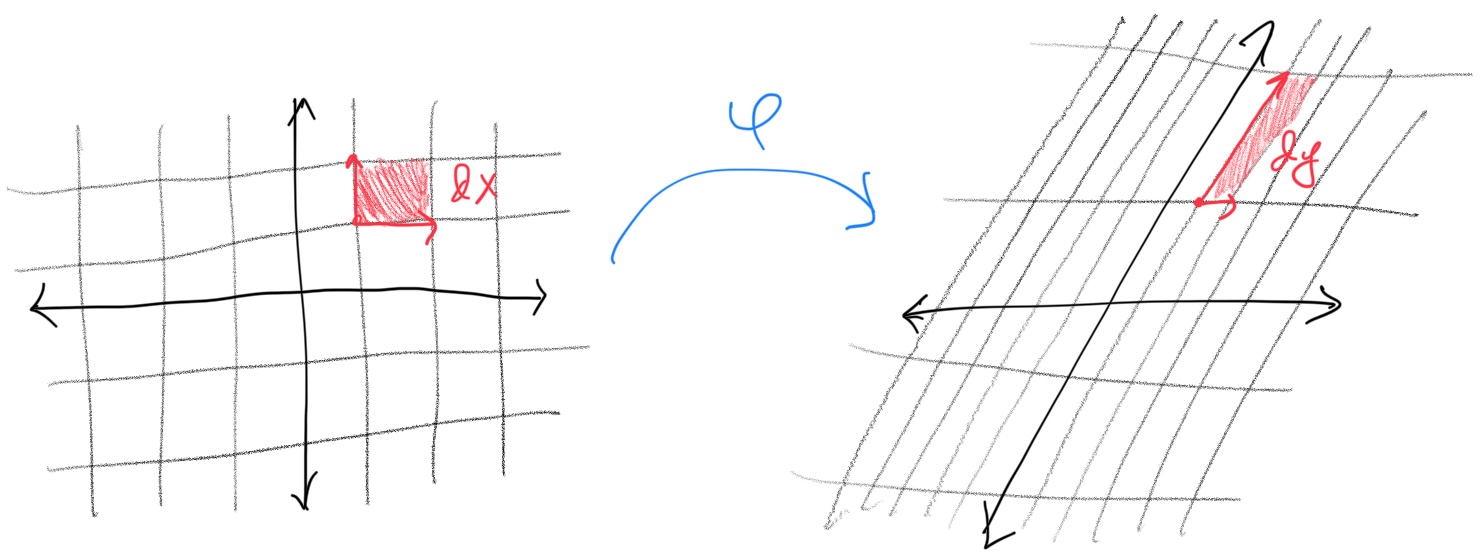 φ
dx
dy